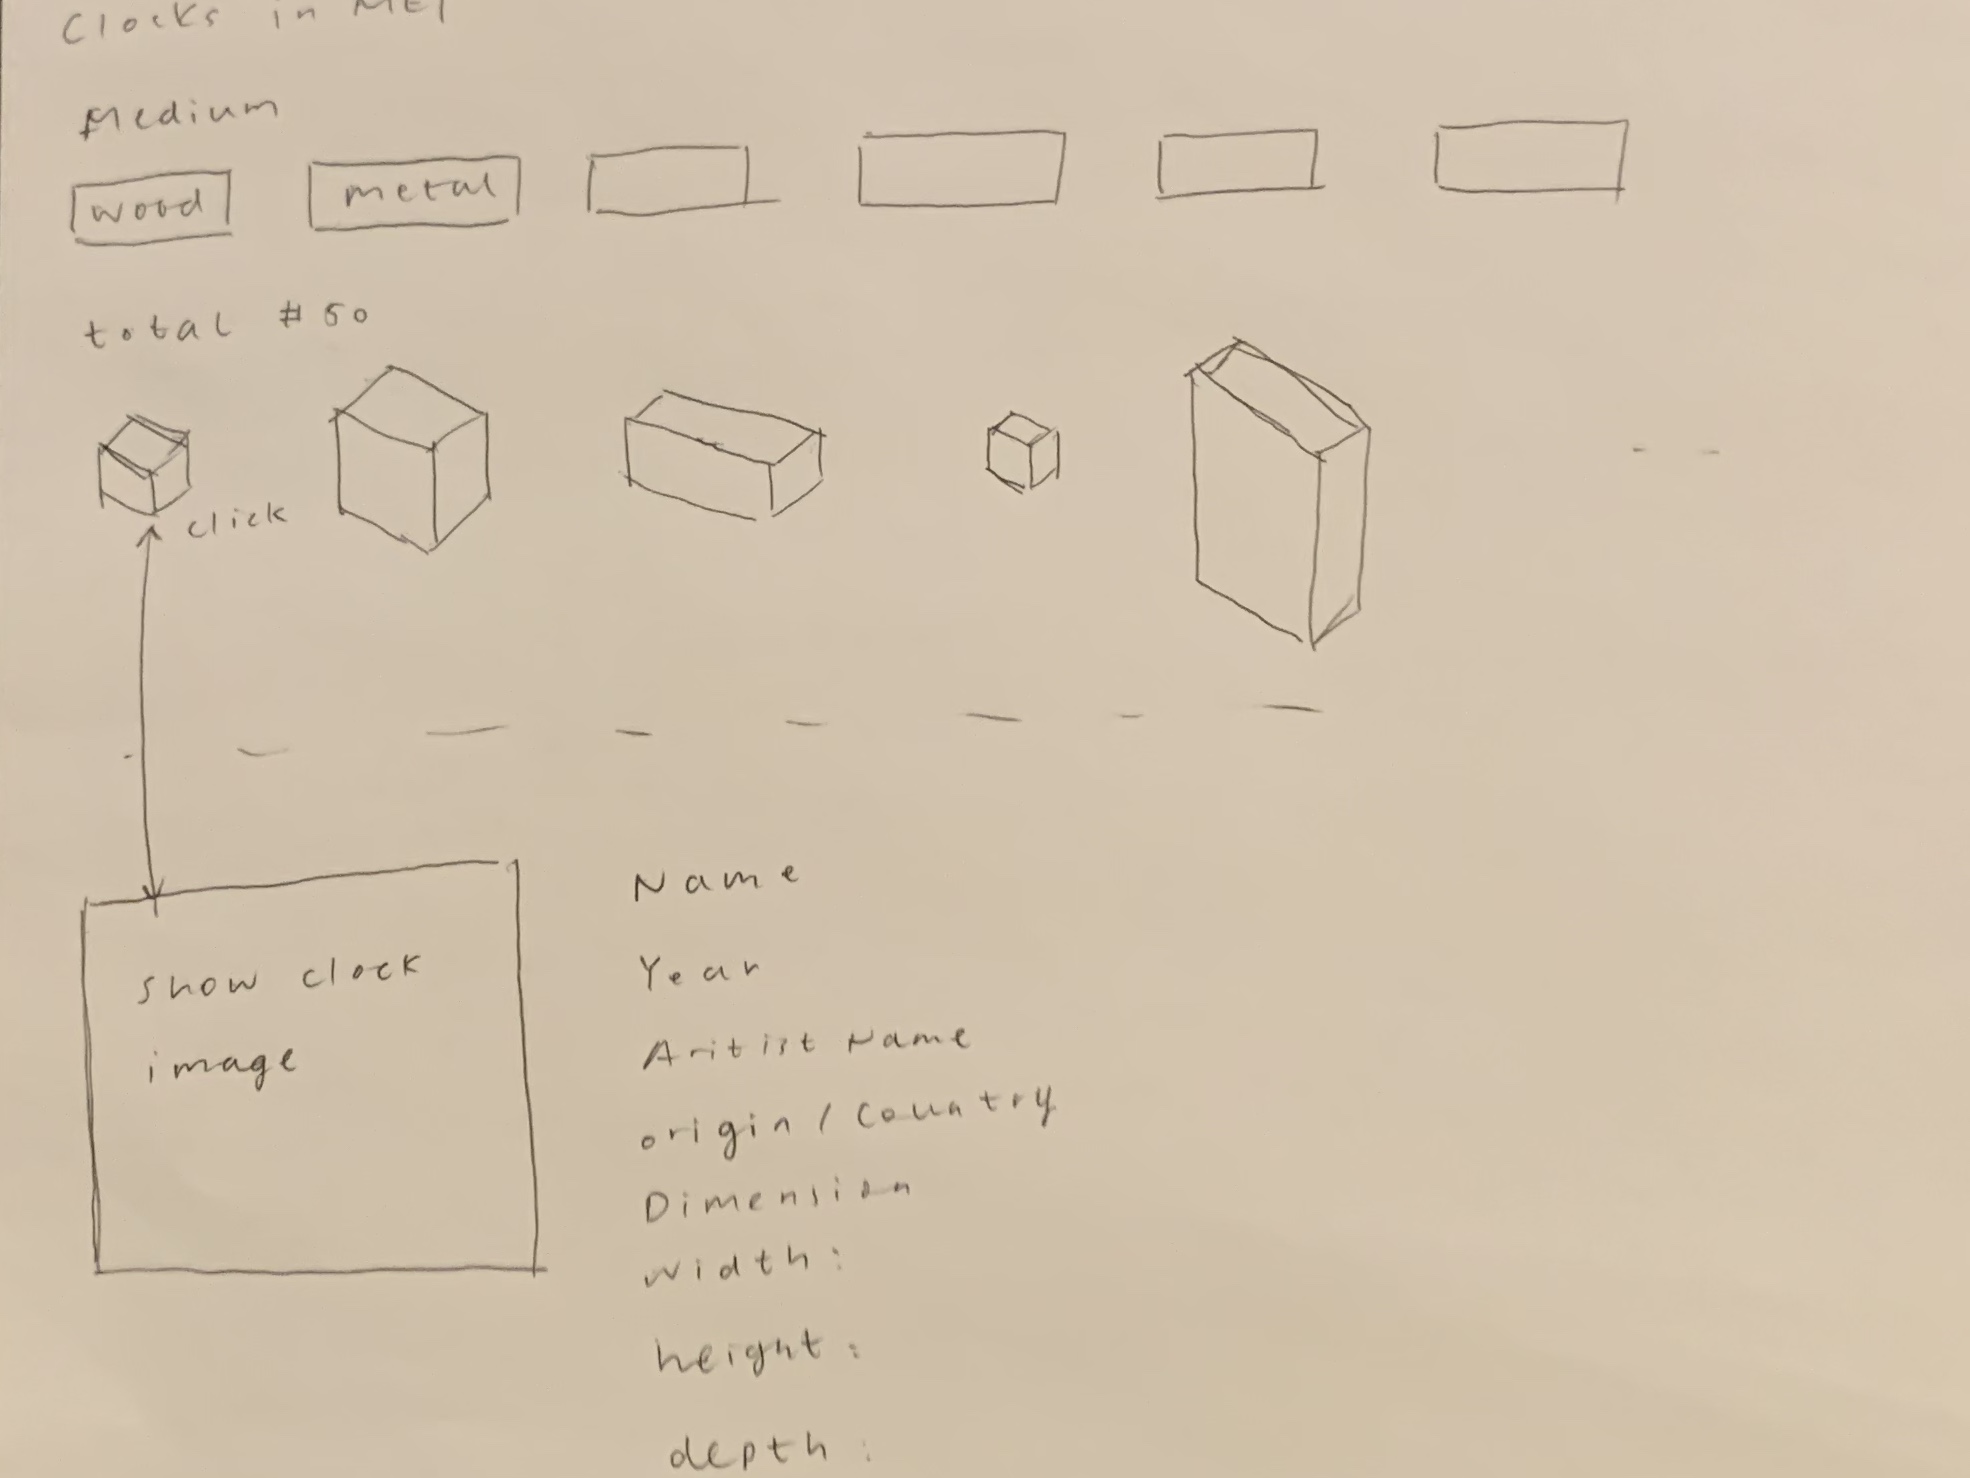 Clocks in MET
Medium
wood metal
total #50
click
show clock
image
Name
Year
Aritist Name
origin / Country
Dimension
width:
height:
depth: